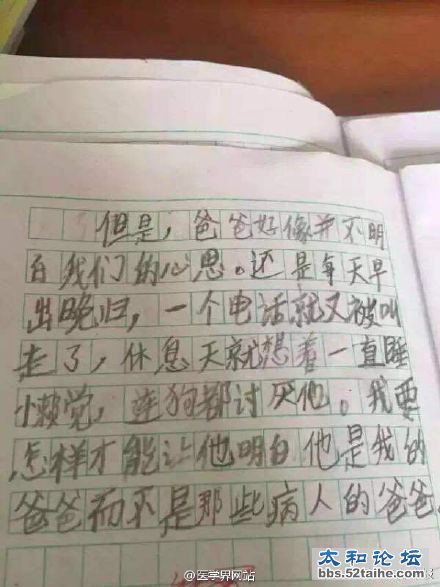 但是，爸爸好像并不明
白我们的心思。还是每天早
出晚归，一个电话就又被叫
走了，休息天就想着一直睡
懒觉，连狗都讨厌他。我要
怎样才能让他明白他是我的
爸爸而不是那些病人的爸爸。
@医学界网站
太和论坛
bbs.52taihe.com